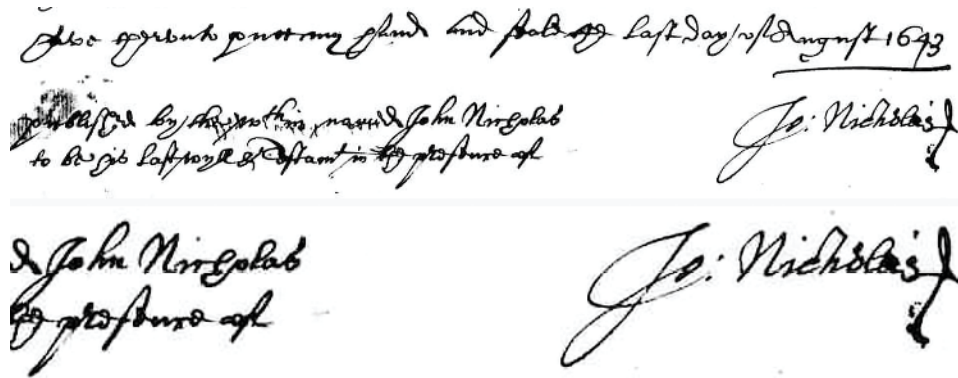 have hereunto putt my hand and seale the last day of August 1643
published by the wthin named John Nicholas
to be his last will & Testamt in the presence of
Jo: Nicholas
John Nicholas
presence of
Jo: Nicholas